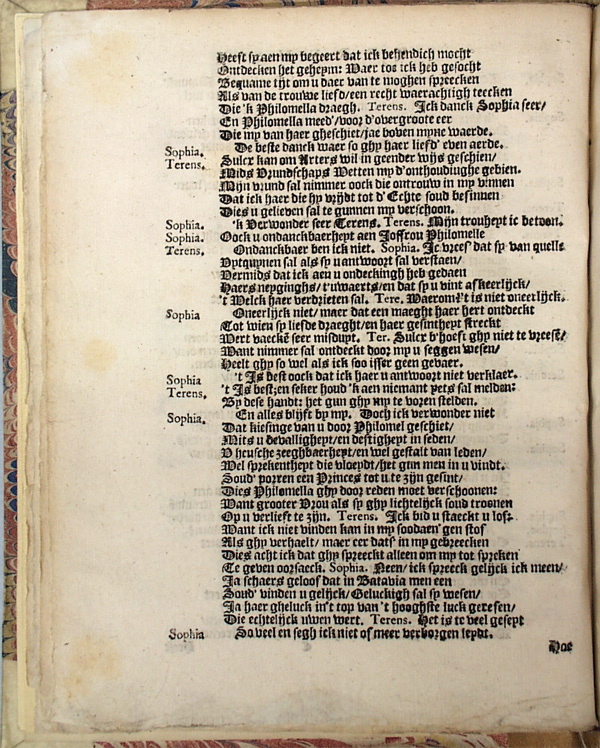 Heeft sy aen my begeert dat ick behendich mocht
Ontdecken het geheym: Waer toe ick heb gesocht
Bequame tijt om u daer van te moghen spreecken
Als van de trouwe liefd/ een recht waerachtigh teecken
Die 'k Philomella draegh. Terens. Ick danck Sophia seer/
En Philomella meed'/ voor d'overgroote eer
Die my van haer gheschiet/ jae boven myne waerde.
Sophia. De beste danck waer so ghy haer liefd' even aerde.
Terens. Sulcx kan om Arters wil in geender wijs geschien/
Mids Vrundschaps Wetten my d'onthoudinghe gebien.
Mijn vrund sal nimmer oock die ontrouw in my vinnen
Dat ick haer die hy vrijdt tot d'Echte soud besinnen
Dies u gelieven sal te gunnen my verschoon.
Sophia. 'k Verwonder seer Terens. Terens. Mijn trouheyt ic betoon.
Sophia. Oock u ondanckbaerheyt aen Joffrou Philomelle
Terens. Ondanckbaer ben ick niet. Sophia. Ic vrees' dat sy van quelle
Uytquynen sal als sy u antwoort sal verstaen/
Vermids dat ick aen u ondeckingh heb gedaen
Haers neyginghs/ t'uwaerts/ en dat sy u vint afkeerlijck/
't Welck haer verdrieten sal. Tere. Waerom? 't is niet oneerlijck.
Sophia Oneerlijck niet/ maer dat een maeght haer hert ontdeckt
Tot wien sy liefde draeght/ en haer gesintheyt streckt
Wert vaeckē seer misduyt. Ter. Sulcx b'hoeft ghy niet te vreesē/
Want nimmer sal ontdeckt door my u seggen wesen/
Heelt ghy so wel als ick soo isser geen gevaer.
Sophia 't Is best oock dat ick haer u antwoort niet verklaer.
Terens. 't Is best; en seker houd 'k aen niemant yets sal melden:
By dese handt: het gun ghy my te voren stelden.
Sophia. En alles blijft by my. Doch ick verwonder niet
Dat kiesinge van u door Philomel geschiet/
Mits u devalligheyt/ en destigheyt in seden/
U heusche zeeghbaerheyt/ en wel gestalt van leden/
Wel sprekentheyt die vloeydt/ het gun men in u vindt.
Soud' porren een Princes tot u te zijn gesint/
Dies Philomella ghy door reden moet verschoonen:
Want grooter Vrou als sy ghy lichtelijck soud troonen
Op u verlieft te zijn. Terens. Ick bid u staeckt u lof:
Want ick niet vinden kan in my soodaen' gen stof
Als ghy verhaelt/ maer eer datf' in my gebreecken
Dies acht ick dat ghy spreeckt alleen om my tot spreken
Te geven oorsaeck. Sophia. Neen/ ick spreeck gelijck ick meen/
Ja schaers geloof dat in Batavia men een
Soud' vinden u gelijck/ Geluckigh sal sy wesen/
Ja haer gheluck in't top van 't hooghste luck geresen/
Die echtelijck uwen wert. Terens. Het is te veel gesept
Sophia So veel en segh ick niet of meer verborgen leydt.
Hoe